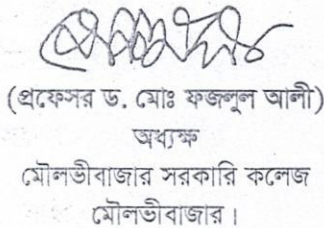 (প্রফেসর ড. মোঃ ফজলুল আলী)
অধ্যক্ষ
মৌলভীবাজার সরকারি কলেজ
মৌলভীবাজার।